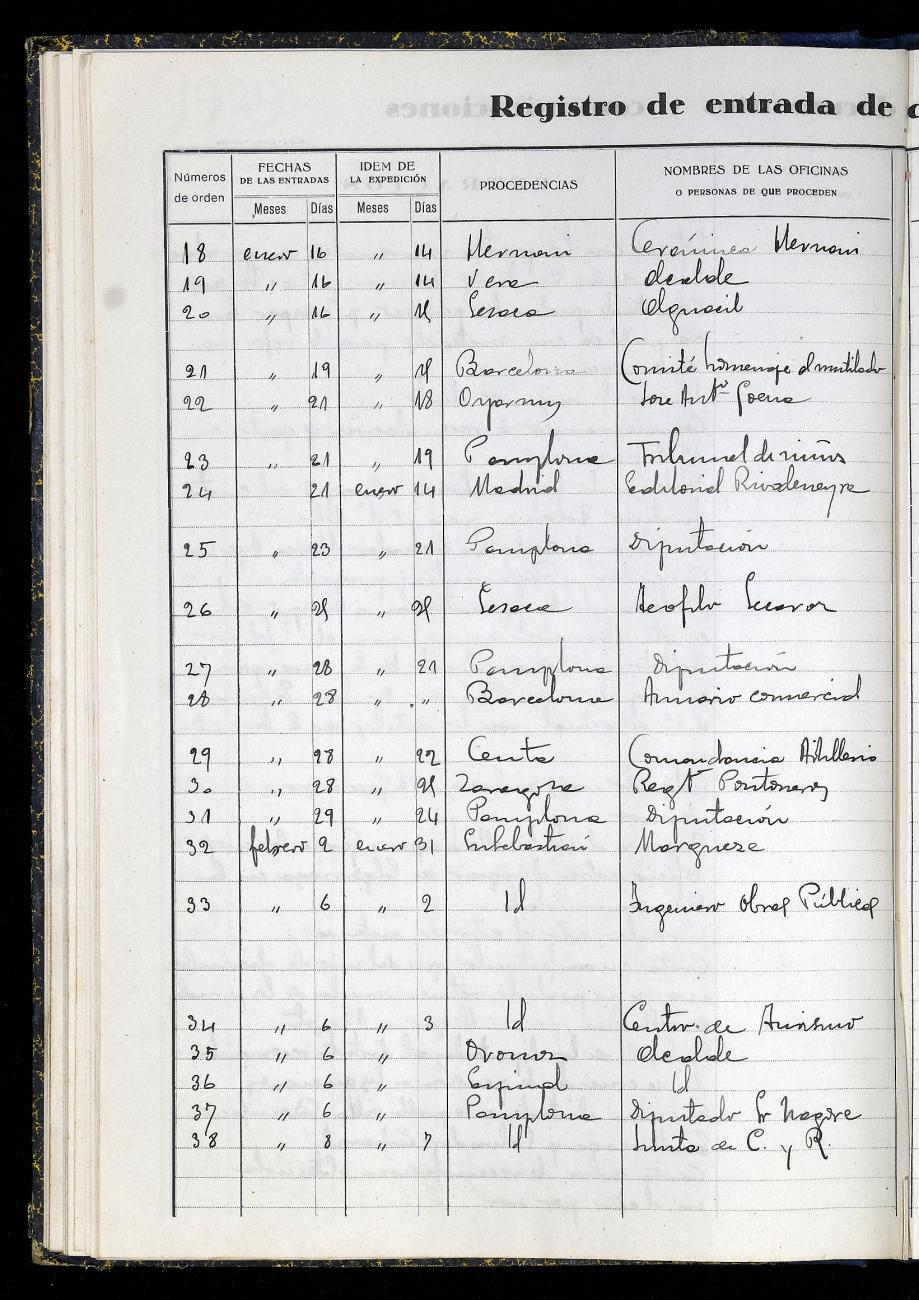 Registro de entrada de
Números de orden
FECHAS DE LAS ENTRADAS
IDEM DE LA EXPEDICIÓN
PROCEDENCIAS
NOMBRES DE LAS OFICINAS O PERSONAS DE QUE PROCEDEN
Meses Días Meses Días
18 enero 16 " 14 Hernani Cerámica Hernani
19 " 16 " 14 Vera Alcalde
20 " 16 " Lesaca Alguacil
21 " 19 " Barcelona Comité homenaje al mutilado
22 " 21 " 18 Oyarzun Jose Antº Goena
23 " 21 " 19 Pamplona Tribunal de niños
24 21 enero 14 Madrid Editorial Rivadeneyra
25 " 23 " 21 Pamplona Diputación
26 " " Lesaca Teofilo
27 " 28 " 21 Pamplona Diputación
28 " 28 " " Barcelona Anuario comercial
29 " 28 " 22 Ceuta Comandancia Artilleria
30 " 28 " Zaragoza Regtº Pontoneros
31 " 29 " 24 Pamplona Diputación
32 febrero 2 enero 31 Sn Sebastián Marqueze
33 " 6 " 2 Id Ingeniero Obras Públicas
34 " 6 " 3 Id Centro de Turismo
35 " 6 " Oronoz Alcalde
36 " 6 " Espinal Id
37 " 6 " Pamplona Diputado Sr Nagore
38 " 8 " 7 Id Junta de C. y R.